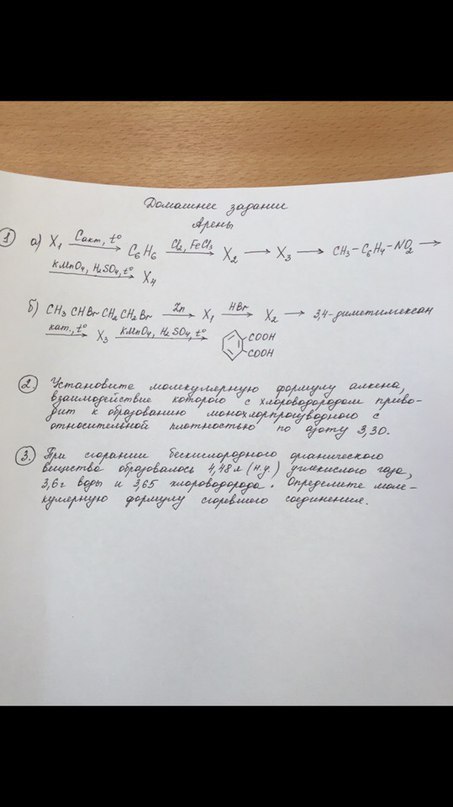 Домашнее задание
Арены
1 а) X₁ Cакт, t° → C₆H₆ Cl₂, FeCl₃ → X₂ → X₃ → CH₃–C₆H₄–NO₂ →
KMnO₄, H₂SO₄, t° → X₄
б) CH₃CHBrCH₂CH₂Br Zn → X₁ HBr → X₂ → 3,4-диметилгексан
кат, t° → X₃ KMnO₄, H₂SO₄, t° → COOH
COOH
2 Установите молекулярную формулу алкена,
взаимодействие которого с хлороводородом приво-
дит к образованию монохлорпроизводного с
относительной плотностью по азоту 3,30.
3. При сгорании бескислородного органического
вещества образовалось 4,48 л (н.у.) углекислого газа,
3,6 г воды и 3,65 хлороводорода. Определите моле-
кулярную формулу сгоревшего соединения.